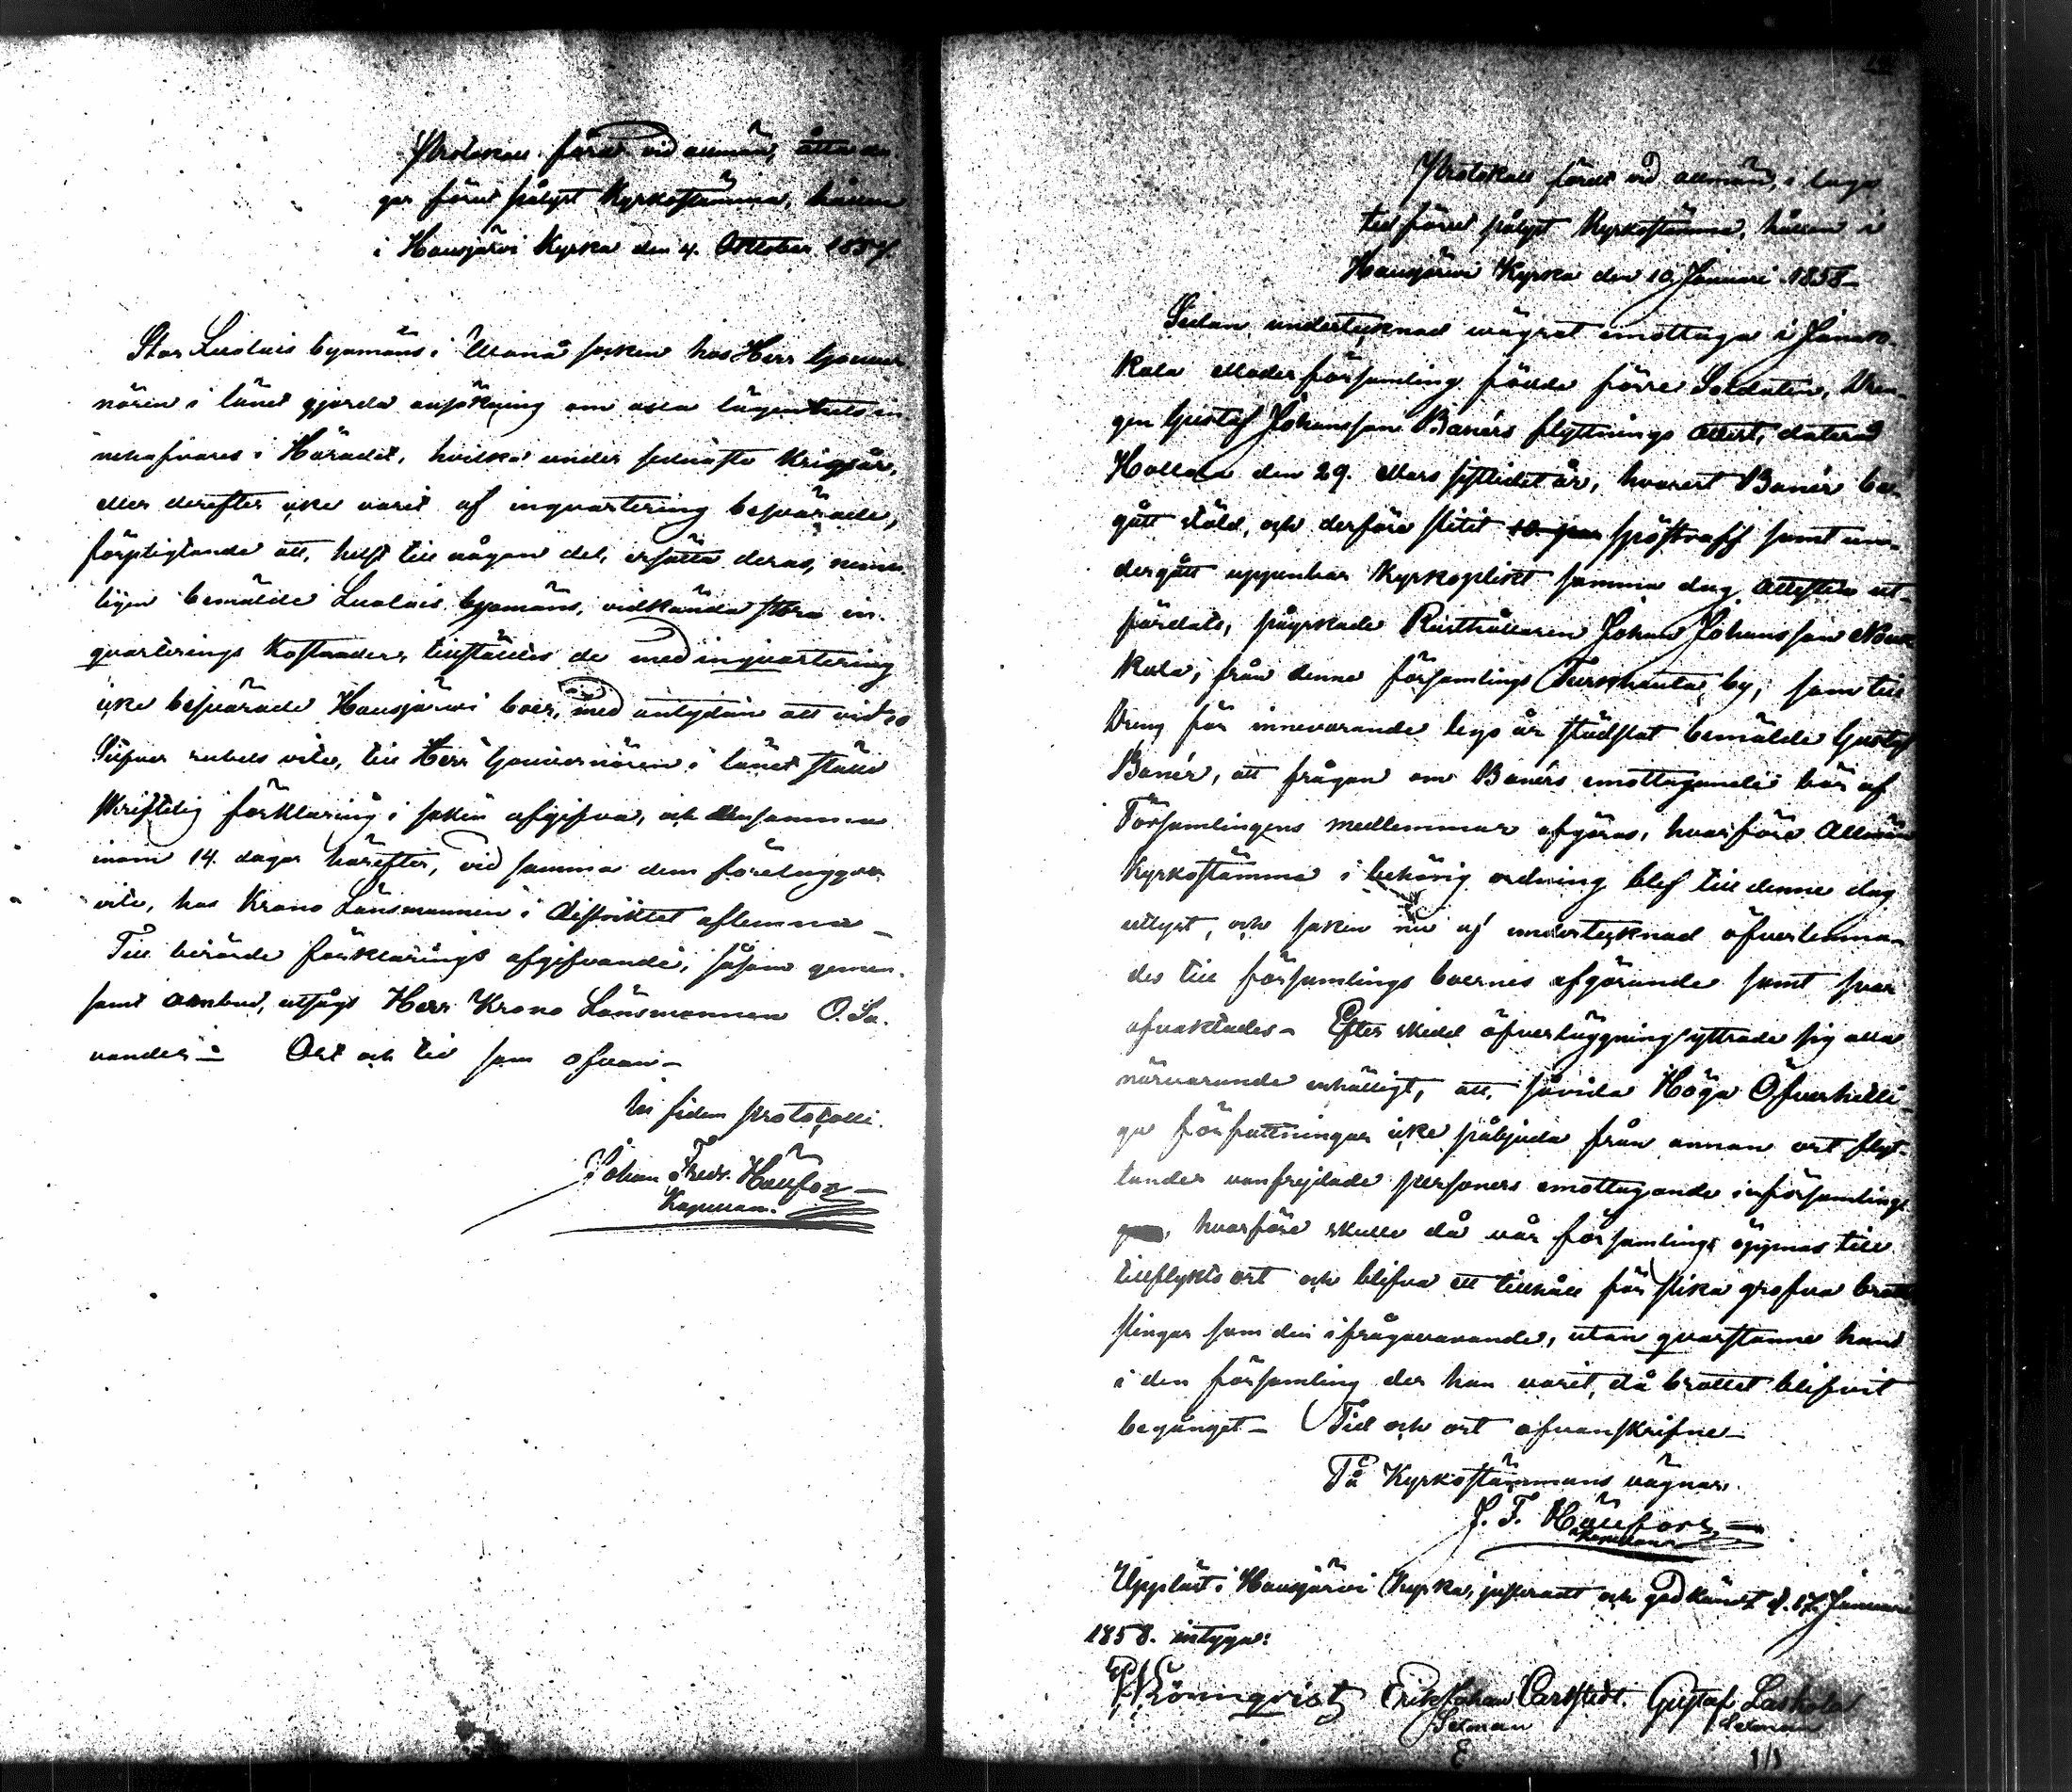 Protokoll fördt vid allmän, åtta da-
gar förut pålyst Kyrkostämma, hållen
i Hausjärvi Kyrka den 4. Oktober 1857.
Stor Luolais byamäns i Wånå socken hos Herr Gouver-
nören i länet gjorda ansökning om alla lägenhets in-
nehafvares i Häradet, hvilka under sednaste krigsår,
eller derefter icke varit af inqvartering besvärade,
förpligtande att, helst till någon del, ersätta deras, nemn-
ligen bemälde Luolais byamäns, vidkända stora in-
qvarterings kostnader, tillställdes de med inqvartering
icke besvärade Hausjärvi boer, med antydan att vid 10
Silfver rubels vite, till Herr Gouvernören i länet ställd
skriftelig förklaring i saken afgifva, och densamma
inom 14. dagar härefter, vid samma dem föreluggda
vite, hos Krono Länsmannen i distriktet aflemna_
Till berörde förklarings afgifvande, såsom gemen-
samt ombud, utsågs Herr Krono Länsmannen O. Sa-
vander_ Ort och tid som ofvan_
In fidem protocolli.
Johan Fredr. Hällfors
Kapellan.
Protokoll fördt vid allmän, i laga
tid förut pålyst Kyrkostämma, hållen i
Hausjärvi Kyrka den 10 Januari 1858_
Sedan undertecknad vägrat emottaga i Janak-
kala Moderförsamling födde förre Soldaten, Dren-
gen Gustaf Johansson Banérs flyttnings attest, daterad
Hollola den 29. Mars sistlidet år, hvarest Banér be-
gått stöld, och derföre slitit 10 par spöstraff samt un-
dergått uppenbar Kyrkoplikt samma dag attesten ut-
färdats, påyrkade Rusthållaren Johan Johansson Nouk-
kala, från denne församlings Turkhauta by, som till
Dreng för innevarande lego år städslat bemälde Gustaf
Banér, att frågan om Banérs emottagande bör af
Församlingens medlemmar afgöras, hvarföre Allmän
Kyrkostämma i behörig ordning blef till denne dag
utlyst, och saken nu af undertecknad öfverlemna-
des till församlings boernes afgörande samt svar
afvaktades_ Efter skedd öfverläggning yttrade sig alla
närvarande enhälligt, att, såvida Höga Öfverhetli-
ga författningar icke påbjuda från annan ort flyt-
tander vanfrejdade personers emottagande i församling-
hvarföre skulle då vår församling öppnas till
tillflykts ort och blifva ett tillhåll för slika grofva brott-
slingar som den ifrågavarande, utan qvarstanne han
i den församling der han varit, då brottet blifvit
begånget_ Tid och ort ofvanskrifne_
På Kyrkostämmans vägnar.
J. F. Hällfors
Kapellan
Uppläst i Hausjärvi Kyrka, justeradt och godkändt d. 17. Januari
1858. intyga:
Rönnqvist Erik Johan Carlstedt. Gustaf Laskola
Sexman Sexman